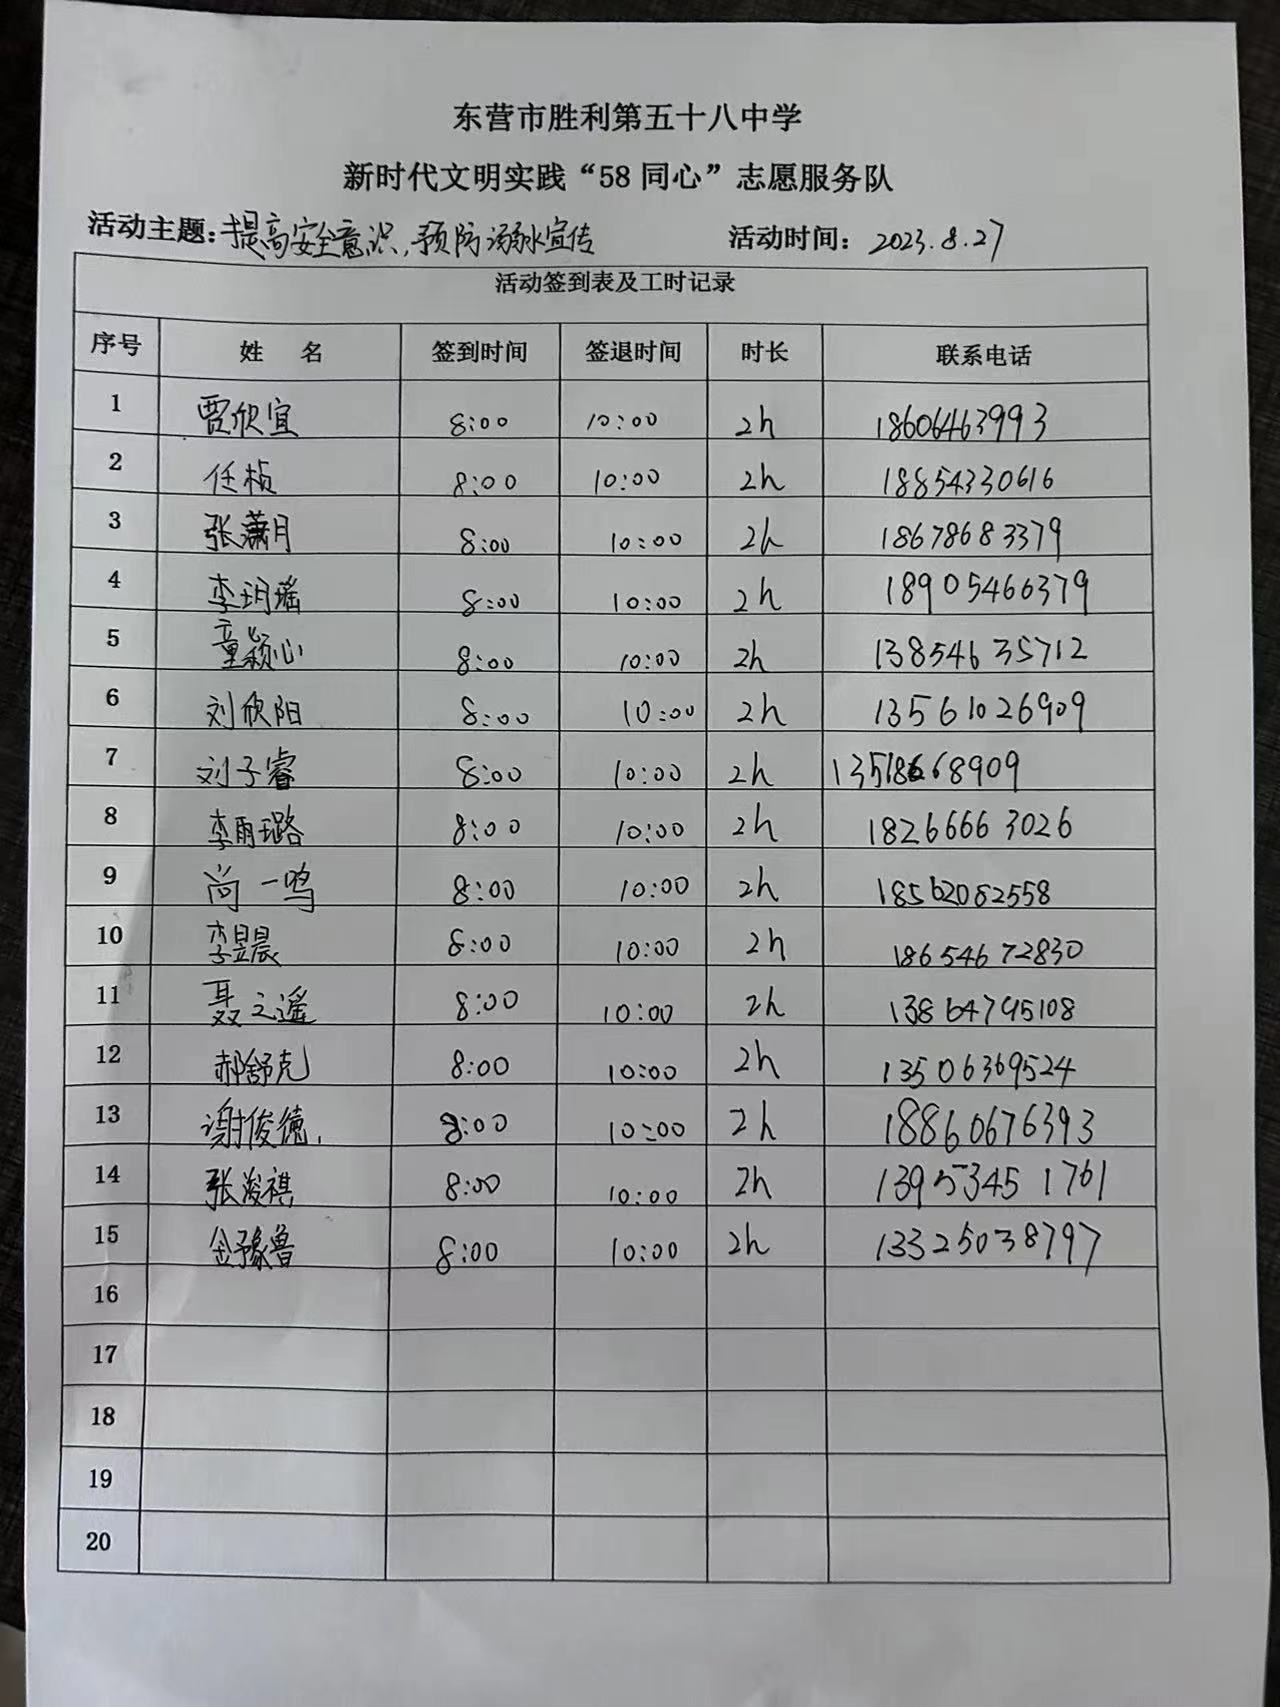 东营市胜利第五十八中学
新时代文明实践“58 同心”志愿服务队
活动主题:提高安全意识,预防溺水宣传 活动时间: 2023.8.27
活动签到表及工时记录
序号 姓 名 签到时间 签退时间 时长 联系电话
1 贾欣宜 8:00 10:00 2h 18606463993
2 任桢 8:00 10:00 2h 18854330616
3 张潇月 8:00 10:00 2h 18678683379
4 李玥瑶 8:00 10:00 2h 18905466379
5 童颖心 8:00 10:00 2h 13854635712
6 刘欣阳 8:00 10:00 2h 13561026909
7 刘子睿 8:00 10:00 2h
8 李雨璐 8:00 10:00 2h 18266663026
9 尚一鸣 8:00 10:00 2h 18562082558
10 李昱晨 8:00 10:00 2h 18654672830
11 聂之遥 8:00 10:00 2h 13864795108
12 郝舒克 8:00 10:00 2h 13506369524
13 谢俊德 8:00 10:00 2h 18860676393
14 张浚祺 8:00 10:00 2h 13953451761
15 金豫鲁 8:00 10:00 2h 13325038797
16
17
18
19
20